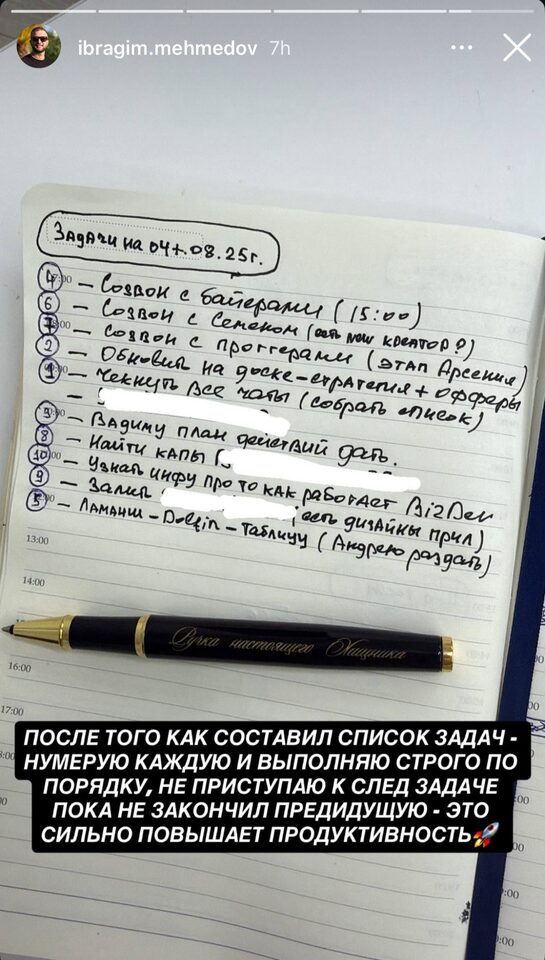 ibragim.mehmedov 7h
Задачи на 04+.08.25г.
4 — Созвон с байерами (15:00)
6 — Созвон с Семеном (есть new креатор?)
7 — созвон с проггерами (этап Арсения)
2 — Обновить на доске-стратегия + офферы
1 — чекнуть все чаты (собрать список)
3 — Вадиму план действий дать.
8 — Найти капы (
10 — Узнать инфу про то как работает BizDev
9 — Залить (есть дизайны прил)
5 — Ламанш - Dolfin - Таблицу (Андрею раздать)
13:00
14:00
Ручка настоящего Хищника
16:00
17:00
ПОСЛЕ ТОГО КАК СОСТАВИЛ СПИСОК ЗАДАЧ -
НУМЕРУЮ КАЖДУЮ И ВЫПОЛНЯЮ СТРОГО ПО
ПОРЯДКУ, НЕ ПРИСТУПАЮ К СЛЕД ЗАДАЧЕ
ПОКА НЕ ЗАКОНЧИЛ ПРЕДИДУЩУЮ - ЭТО
СИЛЬНО ПОВЫШАЕТ ПРОДУКТИВНОСТЬ🚀